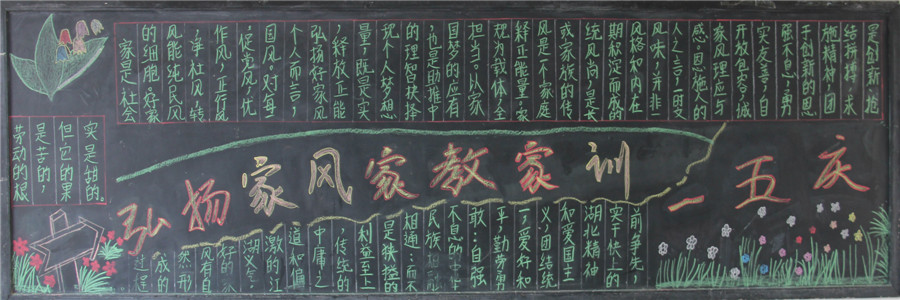 家是社会
的细胞。好家
风能纯民风
，净社风，转
作风，正行风
，促党风，优
国风。对每
个人而言，
弘扬好家风
，释放正能
量，既是实
现个人梦想
的理智抉择
，也是助推中
国梦的应有
担当。以家
规为载体，全
释正能量。家
风是一个家庭
或家族的传
统风尚，是长
期积淀而成的
风格如内在
风味，并非一
人之言一时受
感。因施人的
家风理应与
开放包容、诚
实友善、自
强不息、勇
于创新的思
施精神，团
结拼搏、求
是创新、抢
劳动的根
是苦的，
但它的果
实是甜的。
弘扬家风家教家训 一五庆
前争先，
实干快上的
湖北精神
和爱国主
义，团结统
一，爱好和
平，勤劳勇
敢，自强
不息的中
民族
相通；而不
是狭隘的
利益至上
，传统的
中庸之
道和偏
激的江
湖义气。
好的家
风有自
然形
成的
过程